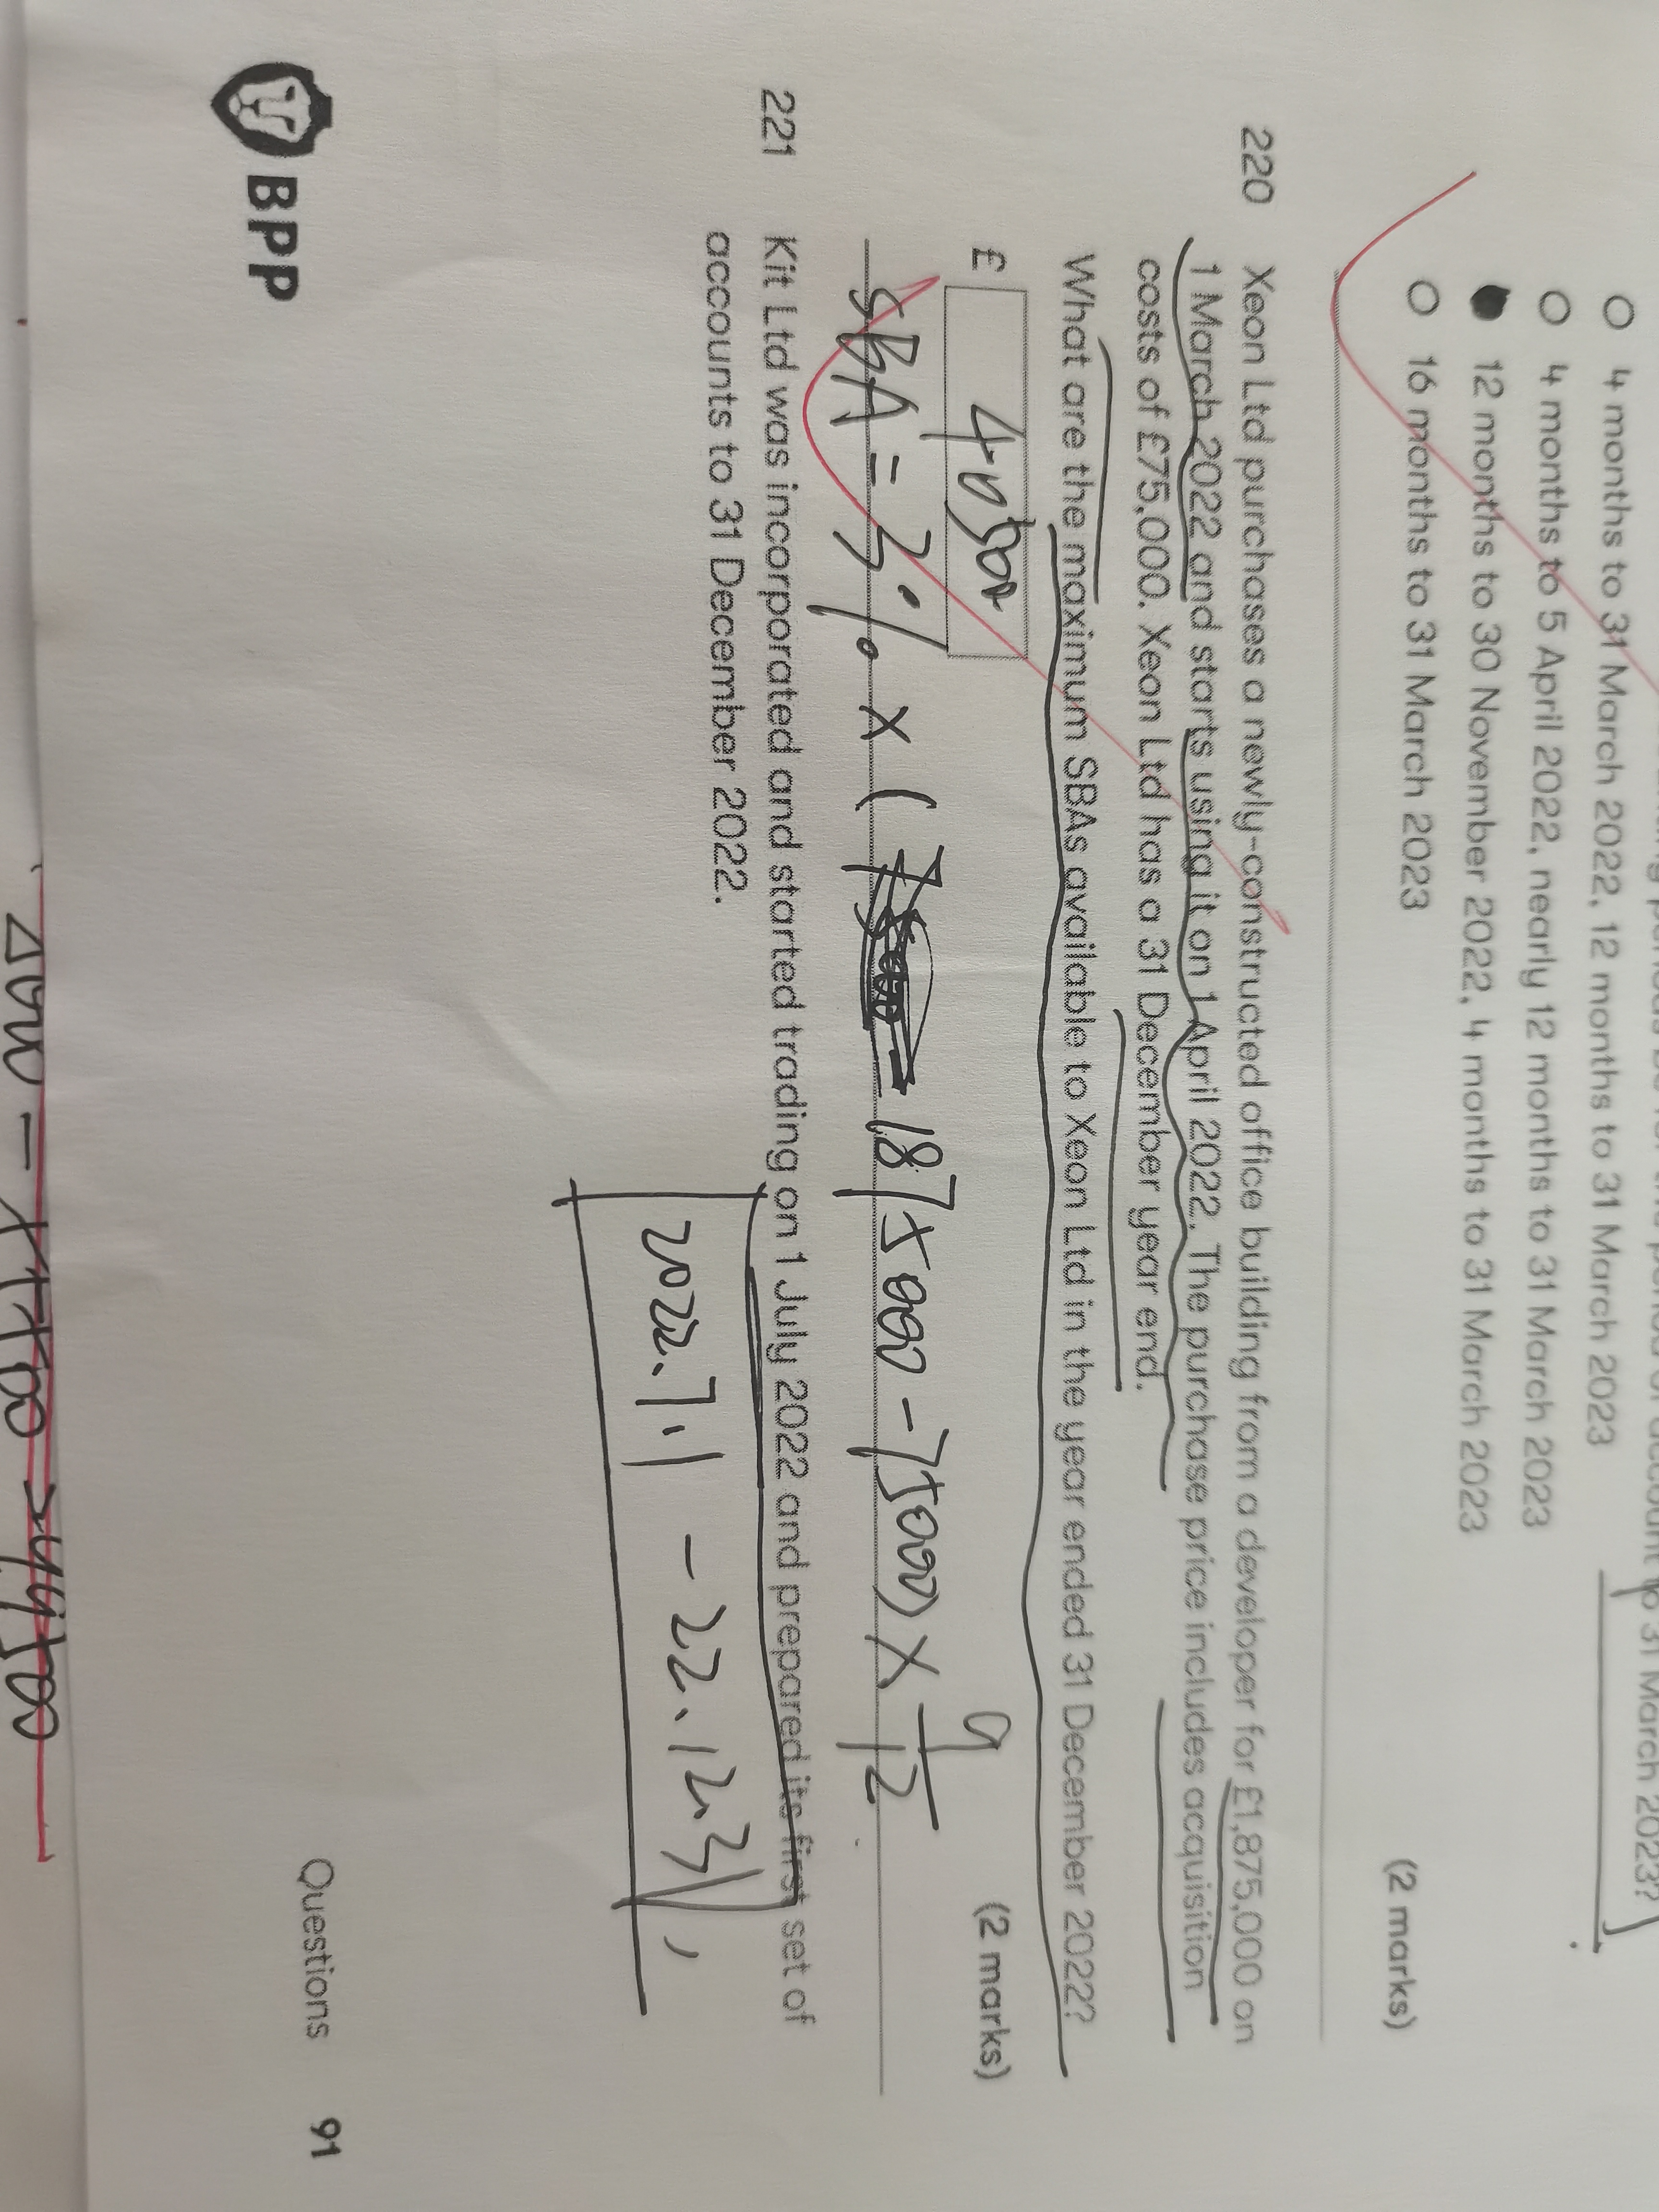 to 31 March 2023?
4 months to 31 March 2022, 12 months to 31 March 2023
4 months to 5 April 2022, nearly 12 months to 31 March 2023
12 months to 30 November 2022, 4 months to 31 March 2023
16 months to 31 March 2023
(2 marks)
220 Xeon Ltd purchases a newly-constructed office building from a developer for £1,875,000 on
1 March 2022 and starts using it on 1 April 2022. The purchase price includes acquisition
costs of £75,000. Xeon Ltd has a 31 December year end.
What are the maximum SBAs available to Xeon Ltd in the year ended 31 December 2022?
£ 40500
(2 marks)
SBA = 3% × ( 1875000 - 75000) × 9/12
221 Kit Ltd was incorporated and started trading on 1 July 2022 and prepared its first set of
accounts to 31 December 2022.
2022.7.1 - 22.12.31
BPP
Questions 91